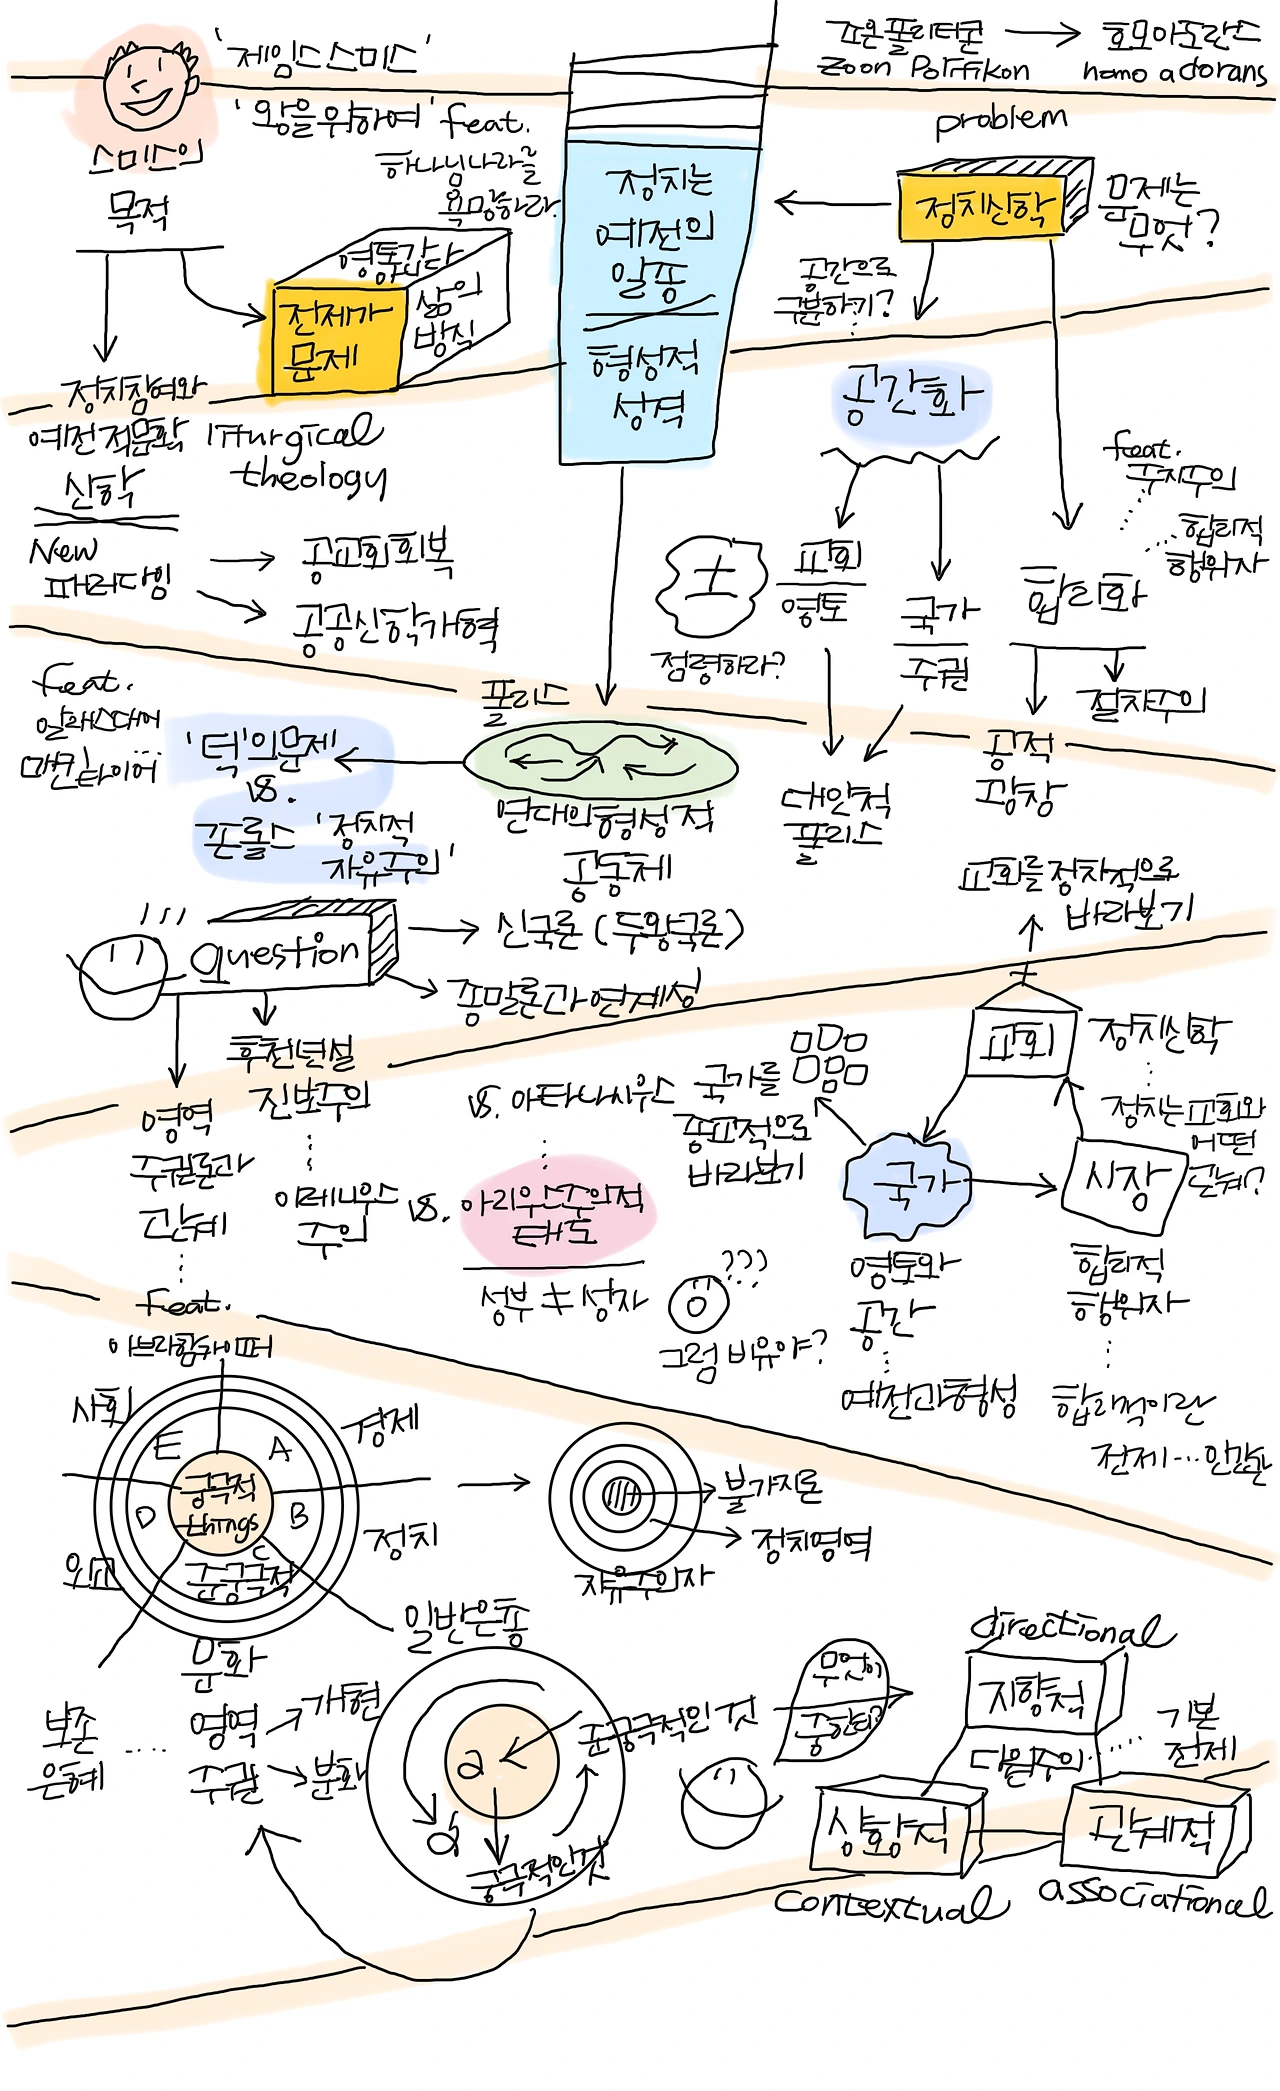 '제임스 스미스'
'왕을 위하여' feat.
하나님나라를
욕망하라
조온폴리티콘 → 호모아도란스
Zoon Politikon homo adorans
problem
스미스의
목적
정치는
예전의
일종
형성적
성격
정치신학
문제는
무엇?
영통감다
전제가
문제
삶의
방식
공간으로
구분하기?
정치참여와
예전적문화
신학
liturgical
theology
공간화
feat.
주지주의
합리적
행위자
New
패러다임
공교회회복
공공신학개혁
교회
영토
점령하라?
국가
주권
합리화
절차주의
공적
광장
feat.
알래스대어
매킨타이어
'턱'의문제
vs.
존롤스 '정치적
자유주의'
폴리스
연대의형성적
공동체
대안적
폴리스
교회를 정치적으로
바라보기
question
신국론 (두왕국론)
종말론과 연계성
후천년설
진보주의
이레니우스
주의
영역
주권론과
관계
feat.
아브라함카이퍼
vs. 아타나시우스
vs. 아리우스주의적
태도
성부 ≠ 성자
국가를
종교적으로
바라보기
교회
정치신학
정치는 교회와
어떤
관계?
국가
시장
영토와
공간
예전과형성
합리적
행위자
합리적이란
전제…인간관
???
그럼 비유야?
사회
경제
정치
외교
문화
E A
D B
C
궁극적
things
준궁극적
불가지론
정치영역
자유주의자
일반은총
보존
은혜
영역
주권
개현
분화
a
준궁극적인 것
궁극적인것
무엇이
중한디?
directional
지향적
다원주의
기본
전제
상황적
관계적
contextual
associational